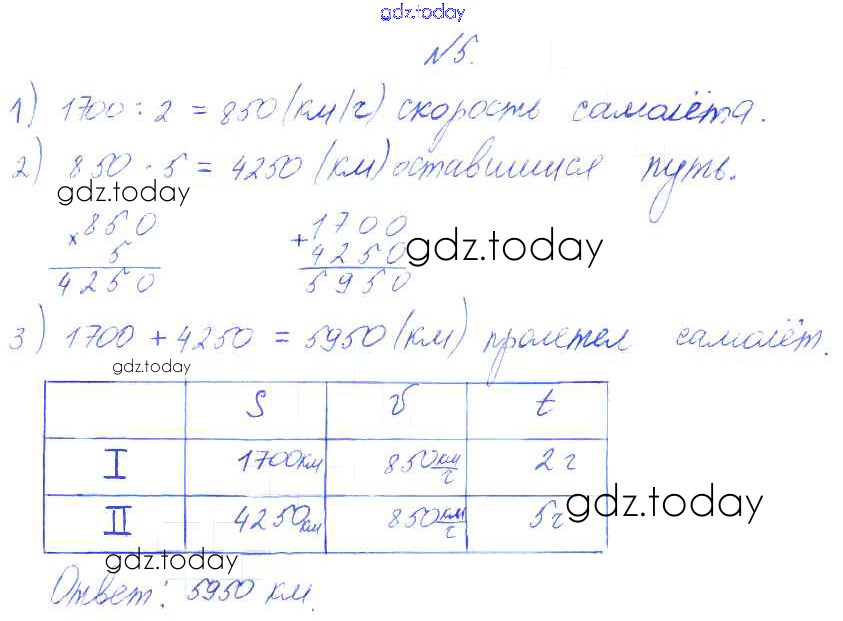 gdz.today
№5.
1) 1700 : 2 = 850 (км/ч) скорость самолёта.
2) 850 · 5 = 4250 (км) оставшийся путь.
gdz.today
×850
5
4250
+1700
4250
5950
gdz.today
3) 1700 + 4250 = 5950 (км) пролетел самолёт.
gdz.today
S v t
I 1700км 850км/ч 2 ч
II 4250км 850км/ч 5ч
gdz.today
gdz.today
Ответ: 5950 км.